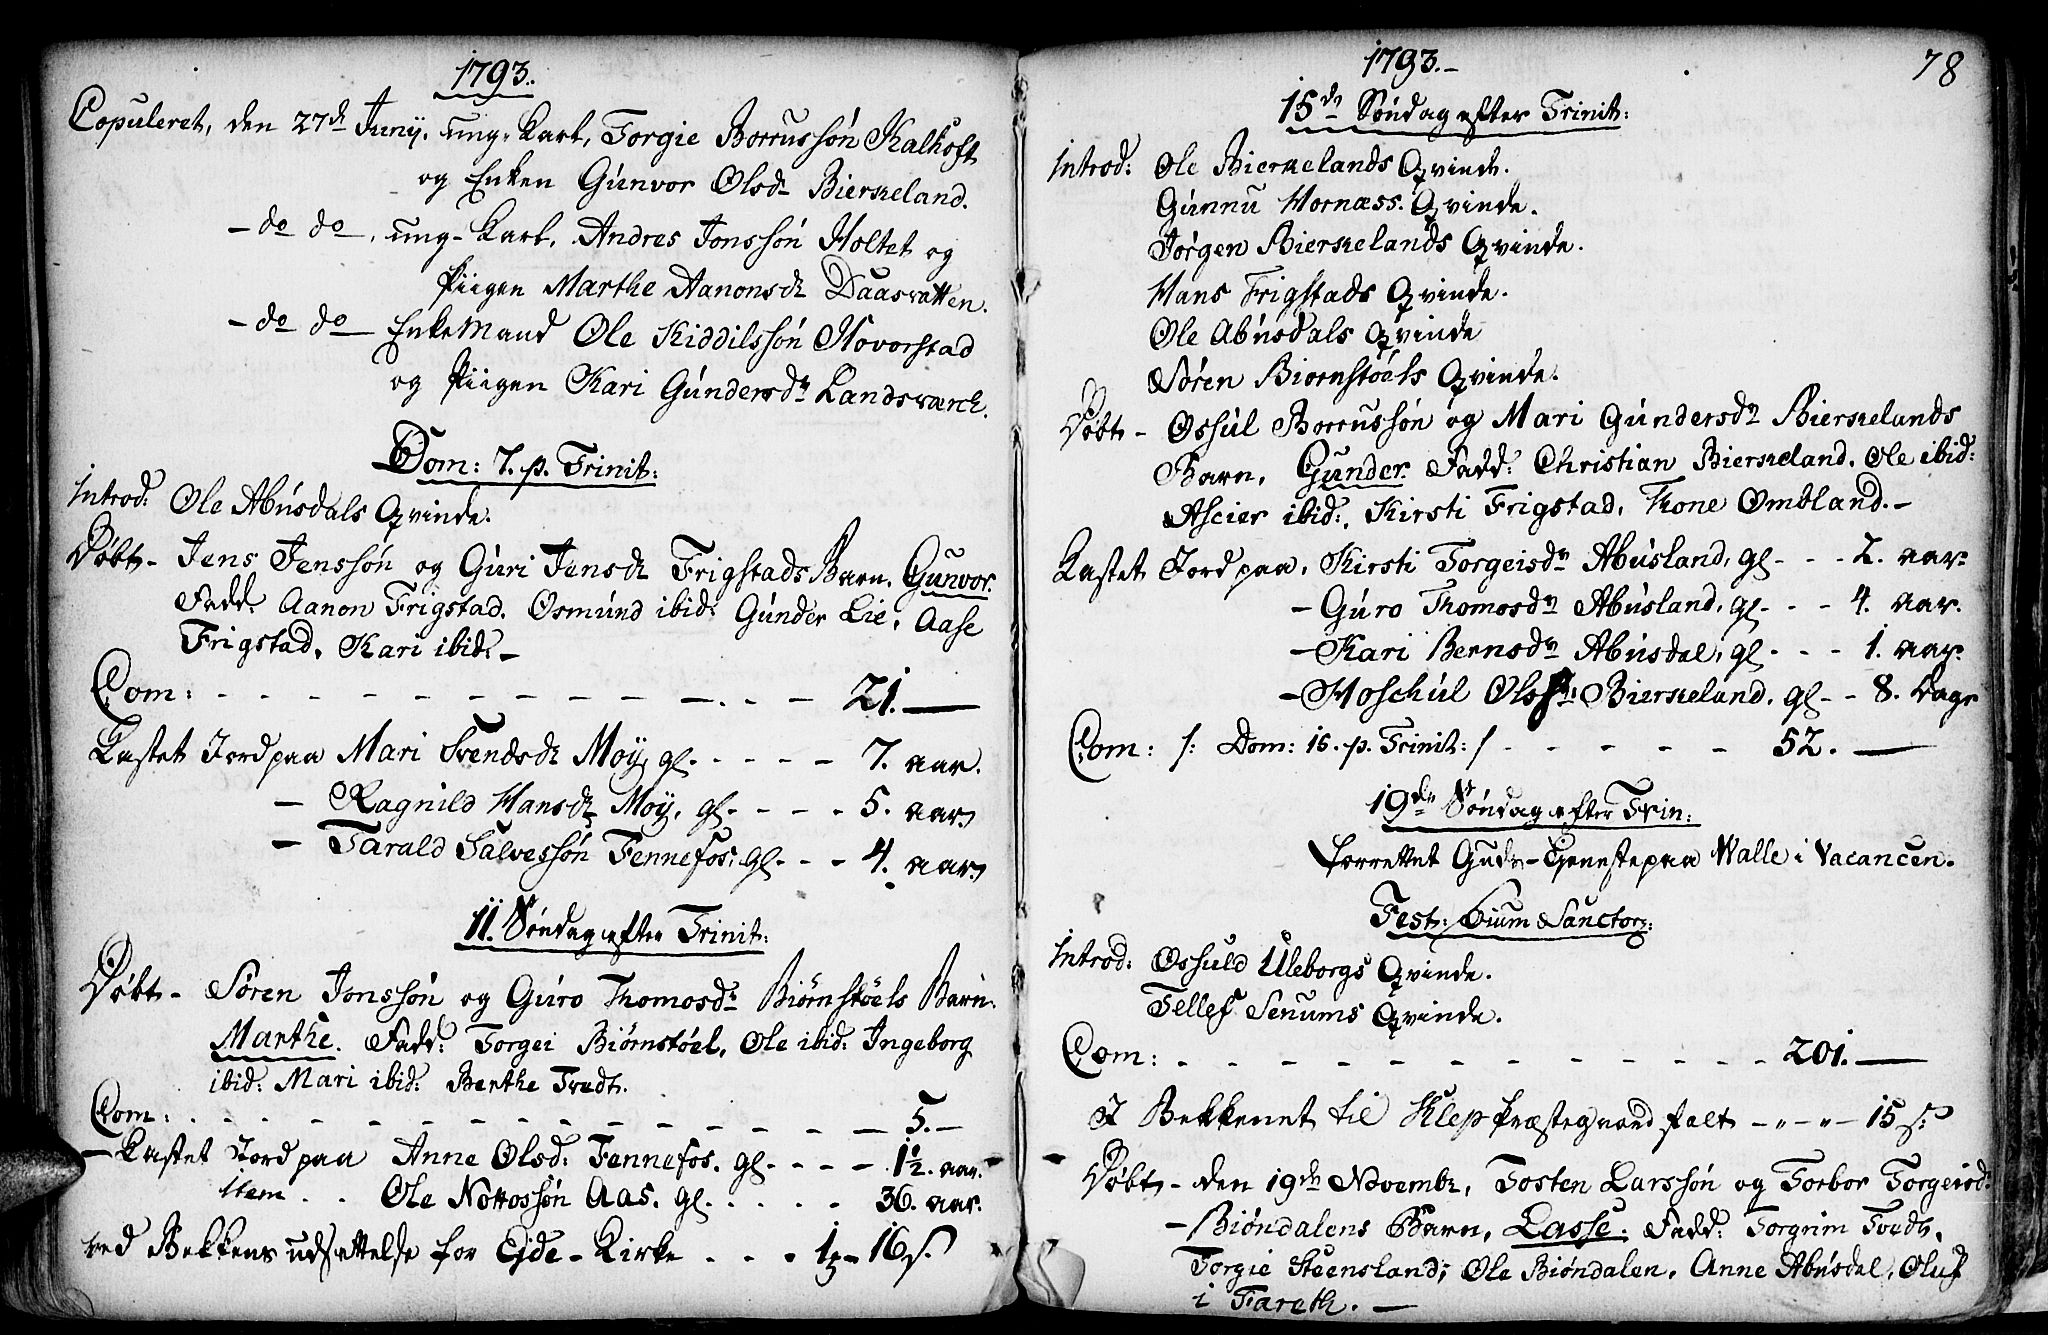 1793.
Copuleret, den 27de Junij. ung-Karl, Torgie Borrussøn Kalhoft
og Enken Gunvor Olsdr Bierkeland.
- do do, ung-Karl, Andres Jonssøn Holtet og
Piigen Marthe Aanonsdr Daasvatten.
- do do EnkeMand Ole Kiddilssøn Hovorstad
og Piigen Kari Gundersdr Landsværk.
Dom: 7. p. Trinit:
Introd: Ole Abusdals Qvinde.
Døbt - Jens Jenssøn og Guri Jensdr Frigstads Barn. Gunvor.
Fadd: Aanon Frigstad. Osmund ibid: Gunder Lie, Aase
Frigstad, Kari ibid: -
Com: - - - - - 21. —
Kastet Jord paa Mari Svendsdr Moÿ, gl. - - - - 7. aar.
— Ragnild Hansdr Moÿ, gl. - - - - 5. aar.
— Tarald Salvessøn Fennefos: gl - - - 4. aar.
11. Søndag efter Trinit:
Døbt - Søren Jonssøn og Guro Thomosdr Biørnstøels Barn:
Marthe. Fadd: Torgei Biørnstøel, Ole ibid: Ingeborg
ibid: Mari ibid: Berthe Tvedt.
Com: - - - - - 5. —
- Kastet Jord paa Anne Olsd: Fennefos. gl - - - - 1½. aar.
item . . Ole Nottossøn Aas. gl. . . . . 36. aar.
ved Bekkens udsættelse for Ejde-Kirke . . . 1 - 16 s.
1793.- 78
15de Søndag efter Trinit:
Introd: Ole Bierkelands Qvinde.
Gunnu Hornæss. Qvinde.
Jørgen Bierkelands Qvinde.
Hans Frigstads Qvinde.
Ole Abusdals Qvinde
Søren Biornstöels Qvinde.
Døbt - Ossul Borrussøn og Mari Gundersdr Bierkelands
Barn, Gunder. Fadd: Christian Bierkeland. Ole ibid:
Ascier ibid:, Kirsti Frigstad, Thone Ombland.-
Kastet Jord paa, Kirsti Torgeisdr Abusland, gl - - - 2. aar.
- Guro Thomosdr Abusland, gl. - - - 4. aar.
- Kari Bernsdr Abusdal, gl - - - 1. aar.
- Hoschul Olss: Bierkeland. gl - - 8. Dage
Com: /: Dom: 15. p. Trinit: / - - - - - 52. —
19de Søndag efter Trin:
forrettet Guds-Tjeneste paa Walle i Vacancen.
Fest: Oium Sanctor:
Introd: Ossuld Uleborgs Qvinde.
Tellef Senums Qvinde.
Com: - - - - - 201. —
I Bekkenet til Klep Præstegrand falt - " - " - 15 s.
Døbt - den 19de Novembr, Tosten Larssøn og Torbor Torgeisd:
- Biøndalens Barn, Lasse. Fadd: Torgrim Tvedt,
Torgie Steensland; Ole Biøndalen, Anne Abusdal, Oluf
i Fareth. —